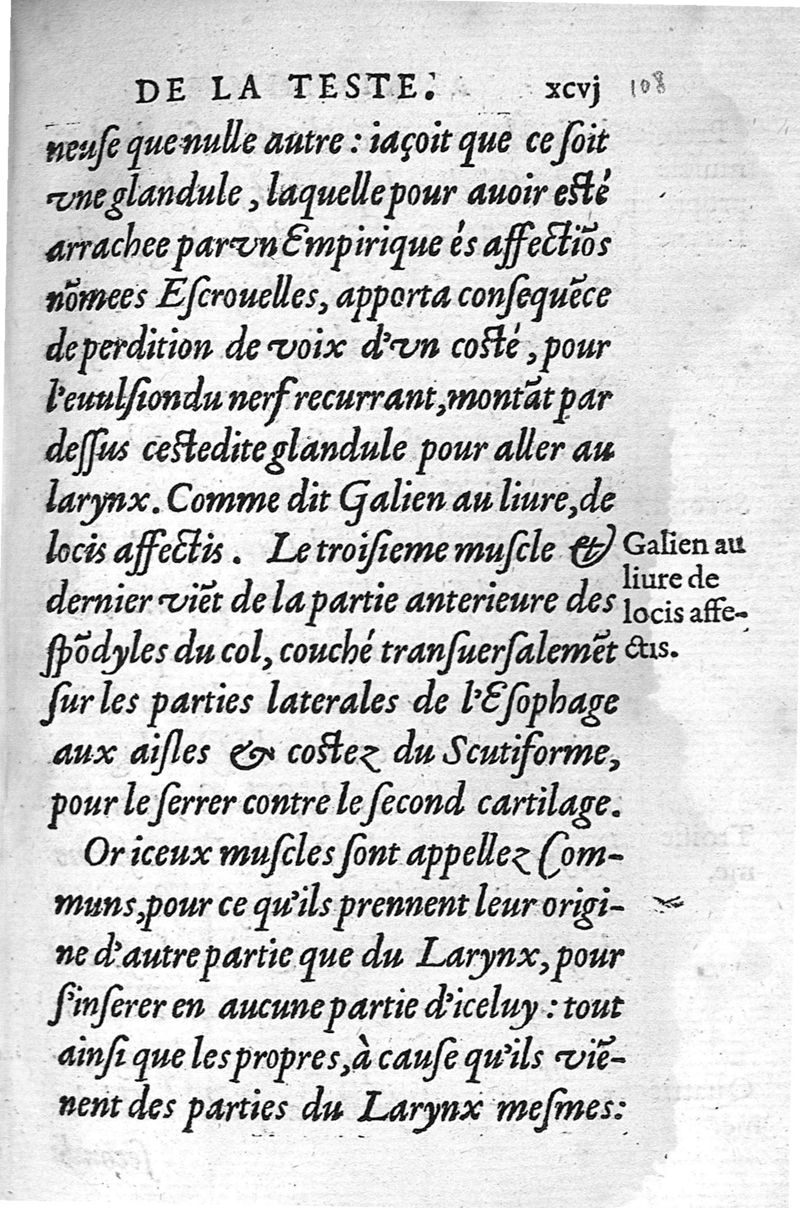 DE LA TESTE. xcvj 108
neuſe que nulle autre : iaçoit que ce ſoit
vne glandule, laquelle pour auoir eſté
arrachee par vn Empirique és affectiõs
nõmees Eſcrouelles, apporta conſequẽce
de perdition de voix d'vn coſté, pour
l'euulſion du nerf recurrant, montãt par
deſſus ceſtedite glandule pour aller au
larynx. Comme dit Galien au liure, de
locis affectis. Le troiſieme muſcle &
dernier viẽt de la partie anterieure des
ſpõdyles du col, couché tranſuerſalemẽt
ſur les parties laterales de l'Eſophage
aux aiſles & coſtez du Scutiforme,
pour le ſerrer contre le ſecond cartilage.
Or iceux muſcles ſont appellez Com-
muns, pour ce qu'ils prennent leur origi-
ne d'autre partie que du Larynx, pour
ſ'inſerer en aucune partie d'iceluy : tout
ainſi que les propres, à cauſe qu'ils viẽ-
nent des parties du Larynx meſmes:
Galien au
liure de
locis affe-
ctis.